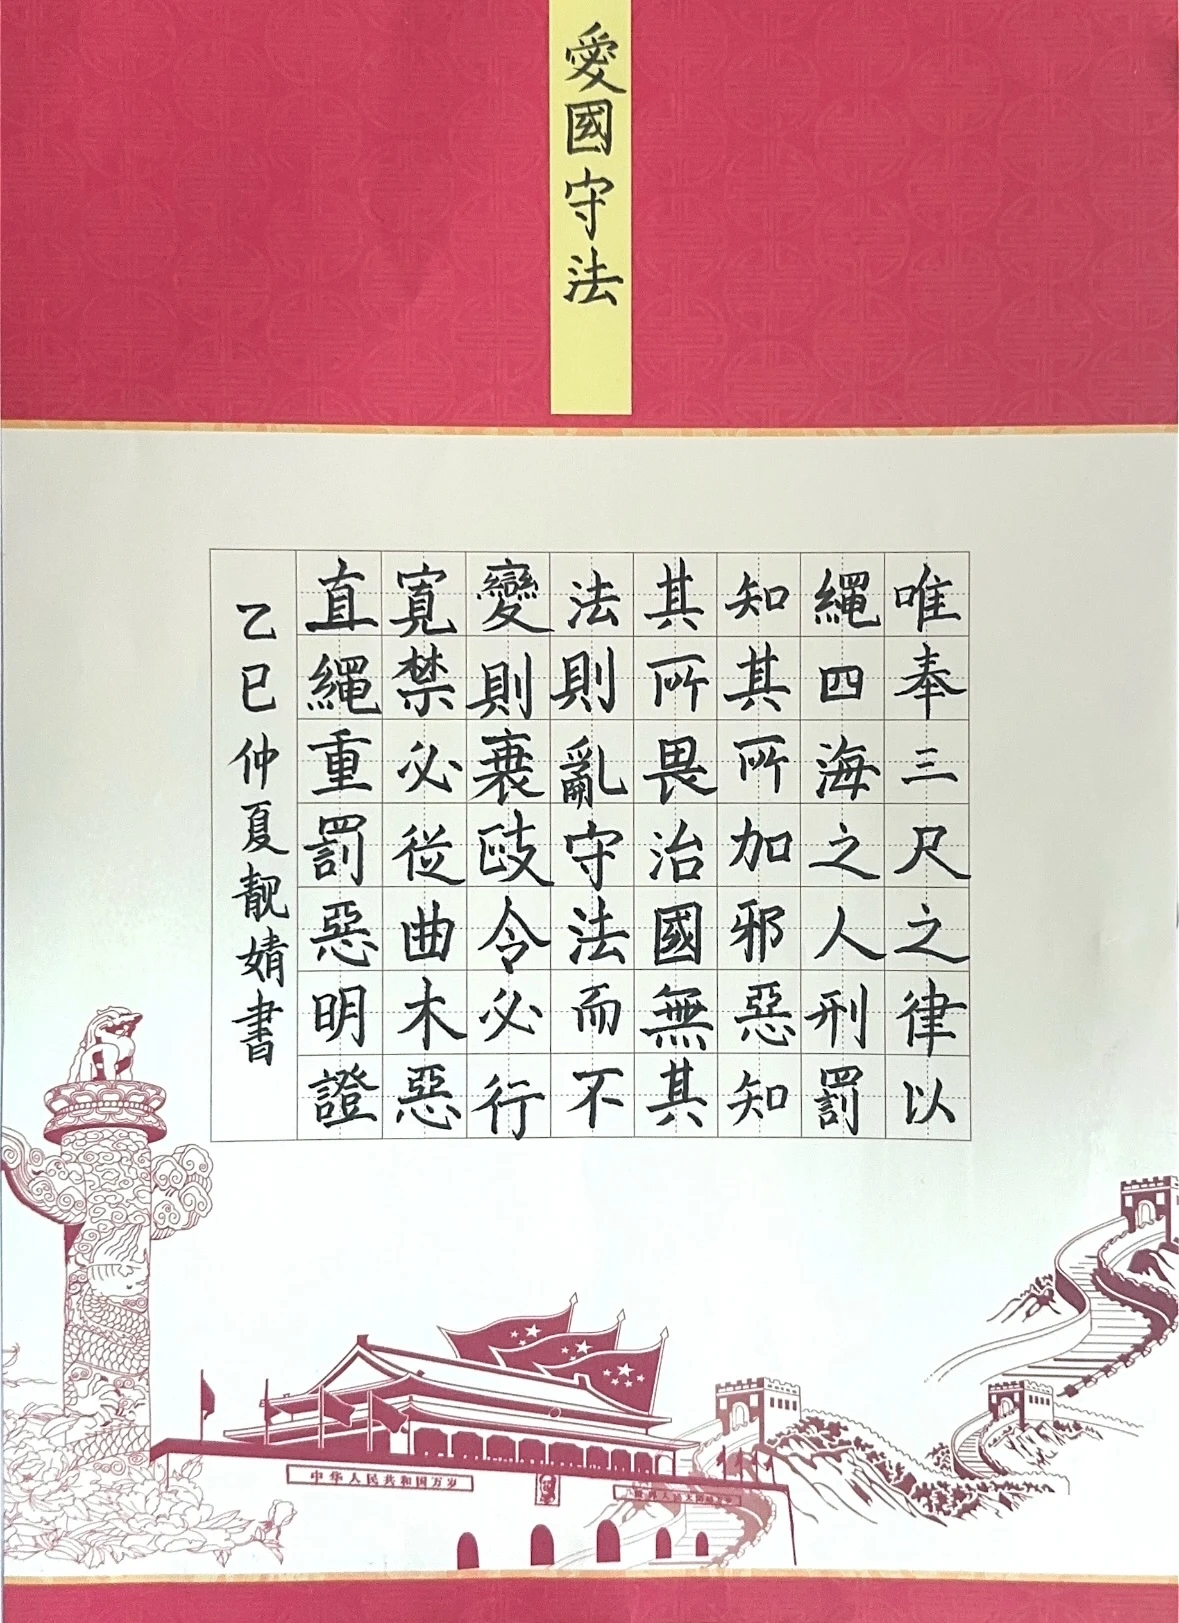 愛國守法
唯奉三尺之律以
繩四海之人刑罰
知其所加邪惡知
其所畏治國無其
法則亂守法而不
變則衰令必行
寬禁必從曲木惡
直繩重罰惡明證
乙巳仲夏靚婧書
中华人民共和国万岁